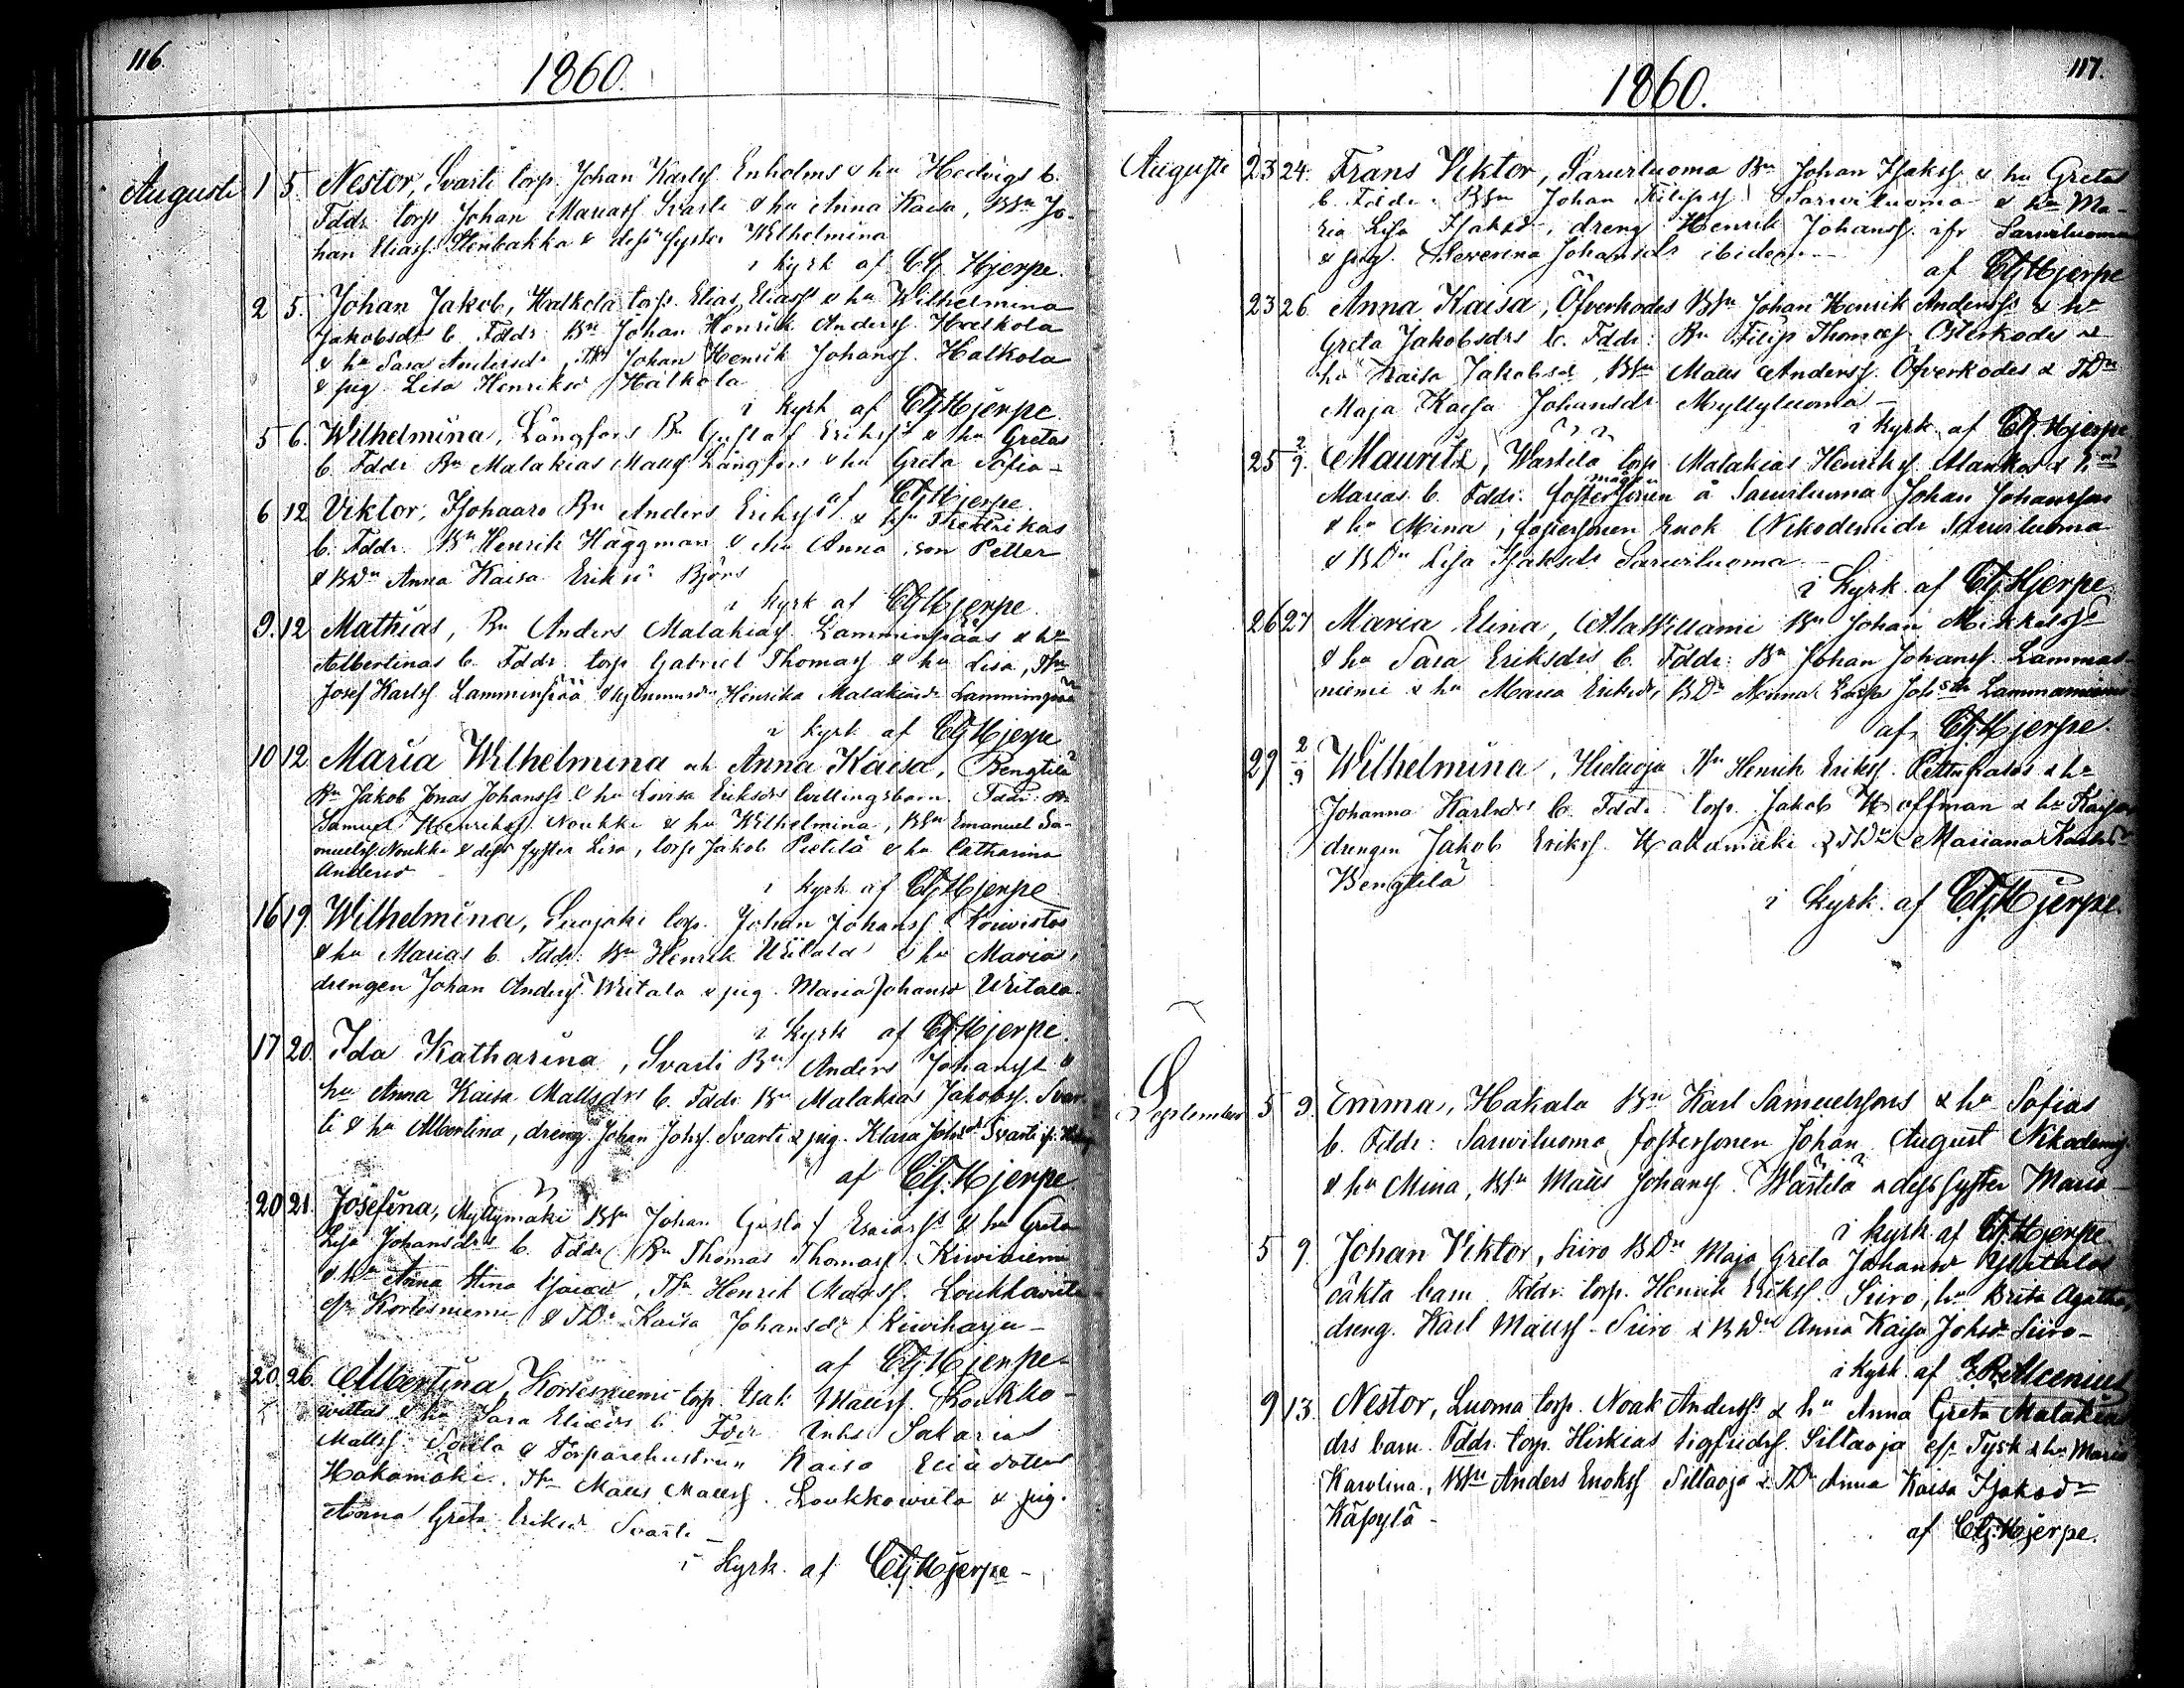 116.
1860.
Augusti 1 5. Nestor, Svarti torp. Johan Karlss. Enholms & hu Hedvigs b.
Fddr torp. Johan Mariass. Svarti & hu Anna Kaisa, BSn Jo-
han Eliass. Stenbakka & dess syster Wilhelmina
i kyrk af CG Hjerpe.
2 5. Johan Jakob, Halkola torp. Elias Eliass & hu Wilhelmina
Jakobsdrs b. Fddr Bn Johan Henrik Anderss. Halkola
& hu Sara Andersdr, TSn Johan Henrik Johanss. Halkola
& pig. Lisa Henriksd Halkola
i kyrk af CGHjerpe
5 6. Wilhelmina, Långfors Bn Gustaf Erikss & hu Gretas
b. Fddr Bn Malakias Matss Långfors & hu Greta Sofia -
af CGHjerpe
6 12 Viktor, Bn Anders Erikss & hu Fredrikas
b. Fddr. Bn Henrik Häggman & hu Anna, son Petter
& BDn Anna Kaisa Eriksd Björs
i kyrk af CGHjerpe
9. 12 Mathias, Bn Anders Malakiass. Lamminpääs & hu
Albertinas b. Fddr torp Gabriel Thomass & hu Lisa, TSn
Josef Karlss. Lamminpää & Henrika Malakiasdr Lamminpää
i kyrk af CGHjerpe
10 12 Maria Wilhelmina och Anna Kaisa, Bengtilä
Bn Jakob Jonas Johanss & hu Lovisa Eriksdrs tvillingsbarn. Fddr: Bn
Samuel Henrikss. Noukki & hu Wilhelmina, BSn Emanuel Sa-
muelss. Noukki & dess syster Lisa, torp Jakob Pietilä & hu Catharina
Andersd
i kyrk af CGHjerpe
16 19 Wilhelmina, torp. Johan Johanss. Koivistos
& hu Marias b. Fddr: Bn Henrik Uitala & hu Maria,
drengen Johan Anderss. Uitala & pig. Maria Johansd Uitala.
i kyrk af CGHjerpe.
17 20. Ida Katharina, Svarti Bn Anders Johanss &
hu Anna Kaisa Mattsdrs b. Fddr Bn Malakias Jakobss. Svar-
ti & hu Albertina, dreng. Johan Johss. Svarti & pig. Klara Johsd Svarti
af CG.Hjerpe
20 21. Josefina, Myllymäki BSn Johan Gustaf Esaiass & hu Greta
Lisa Johansdrs b. Fddr Bn Thomas Thomass. Kiviniemi
& hu Anna Stina, TSn Henrik Matss. Loukkovita
Kortesniemi & TDr Kaisa Johansdr Kiviharju -
af CGHjerpe
20. 26. Albertina, Kortesniemi torp. Isak Matss. Loukko-
vitas & hu Sara Eliadrs b. Fddr Inhs Sakarias
Mattss. Soula & Torparehustrun Kaisa Eliädotter
Hakamäki. TSn Matts Matss. Loukkovita & pig.
Anna Greta Eriksd Svarti -
i kyrk. af CG.Hjerpe -
117.
1860.
Augusti 23 24. Frans Viktor, Sarviluoma Bn Johan Isakss & hu Gretas
b. Fddr. BSn Johan Filipss Sarviluoma & hu Ma-
ria Lisa Isaksd, dreng Henrik Johanss. Sarviluoma
& pig. Severina Johansdr ibidem
af CGHjerpe
23 26 Anna Kaisa, Öfverkodes BSn Johan Henrik Anderss & hu
Greta Jakobsdrs b. Fddr: Bn Filip Thomass Österkodes &
hu Kaisa Jakobsd, BSn Matts Anderss. Öfverkodes & TDn
Maja Kaisa Johansdr Myllyluoma -
i kyrk af CG.Hjerpe
25 2/9. Mauritz, Wästilä torp Malakias Henrikss. Alanko & hu
Marias b. Fddr. fostersonen
mågen
å Sarviluoma Johan Johansson
& hu Mina, fostersonen Enok Nikodemidr Sarviluoma
& BDn Lisa Isaksdr Sarviluoma -
i kyrk af CGHjerpe
26 27 Maria Elina, AlaWillami Bn Johan Mikkelss
& hu Sara Eriksdrs b. Fddr: Bn Johan Johanss. Lammas-
niemi & hu Maria Eriksd, BDn Lammasniemi
af CGHjerpe.
29 2/9 Wilhelmina, Hietaoja Henrik Erikss. & hu
Johanna Karlsdrs b. Fddr torp. Jakob Hoffman & hu Kaisa
drengen Jakob Erikss. Hakamäki & TDn Mariana
Bengtilä
i kyrk. af CGHjerpe.
September 5 9. Emma, Hakala Bn Karl Samuelssons & hu Sofias
b. Fddr: Sarviluoma fostersonen Johan August
& hu Mina, BSn Matts Johanss. Wästilä & dess syster Maria -
i kyrk af CGHjerpe
5 9. Johan Viktor, Siiro BDn Maja Greta Johansd
oäkta barn. Fddr. torp. Henrik Erikss. Siiro, hu Brita Agatha,
dreng. Karl Matss - Siiro & BDn Anna Kaisa Johsdr Siiro -
i kyrk af
9 13. Nestor, Luoma torp. Noak Anderss & hu Anna Greta Malakias
drs barn. Fddr. torp. Hiskias Sigfridss. Siltaoja Tysk & hu Maria
Karolina, BSn Anders Enokss Siltaoja & TDr Anna Kaisa Isaksdr
Käpylä -
af CG.Hjerpe.